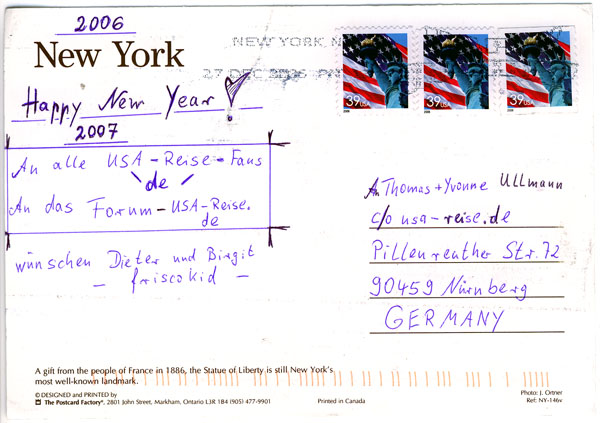 2006
New York
Happy New Year
2007
An alle USA-Reise-Fans
de
An das Forum-USA-Reise.
de
wünschen Dieter und Birgit
- friscokid -
NEW YORK N
27 DEC 2006 PM
39 USA
39 USA
39 USA
An Thomas + Yvonne Ullmann
c/o usa-reise.de
Pillenreuther Str. 72
90459 Nürnberg
GERMANY
A gift from the people of France in 1886, the Statue of Liberty is still New York's
most well-known landmark.
© DESIGNED and PRINTED by
The Postcard Factory®, 2801 John Street, Markham, Ontario L3R 1B4 (905) 477-9901
Printed in Canada
Photo: J. Ortner
Ref: NY-146v